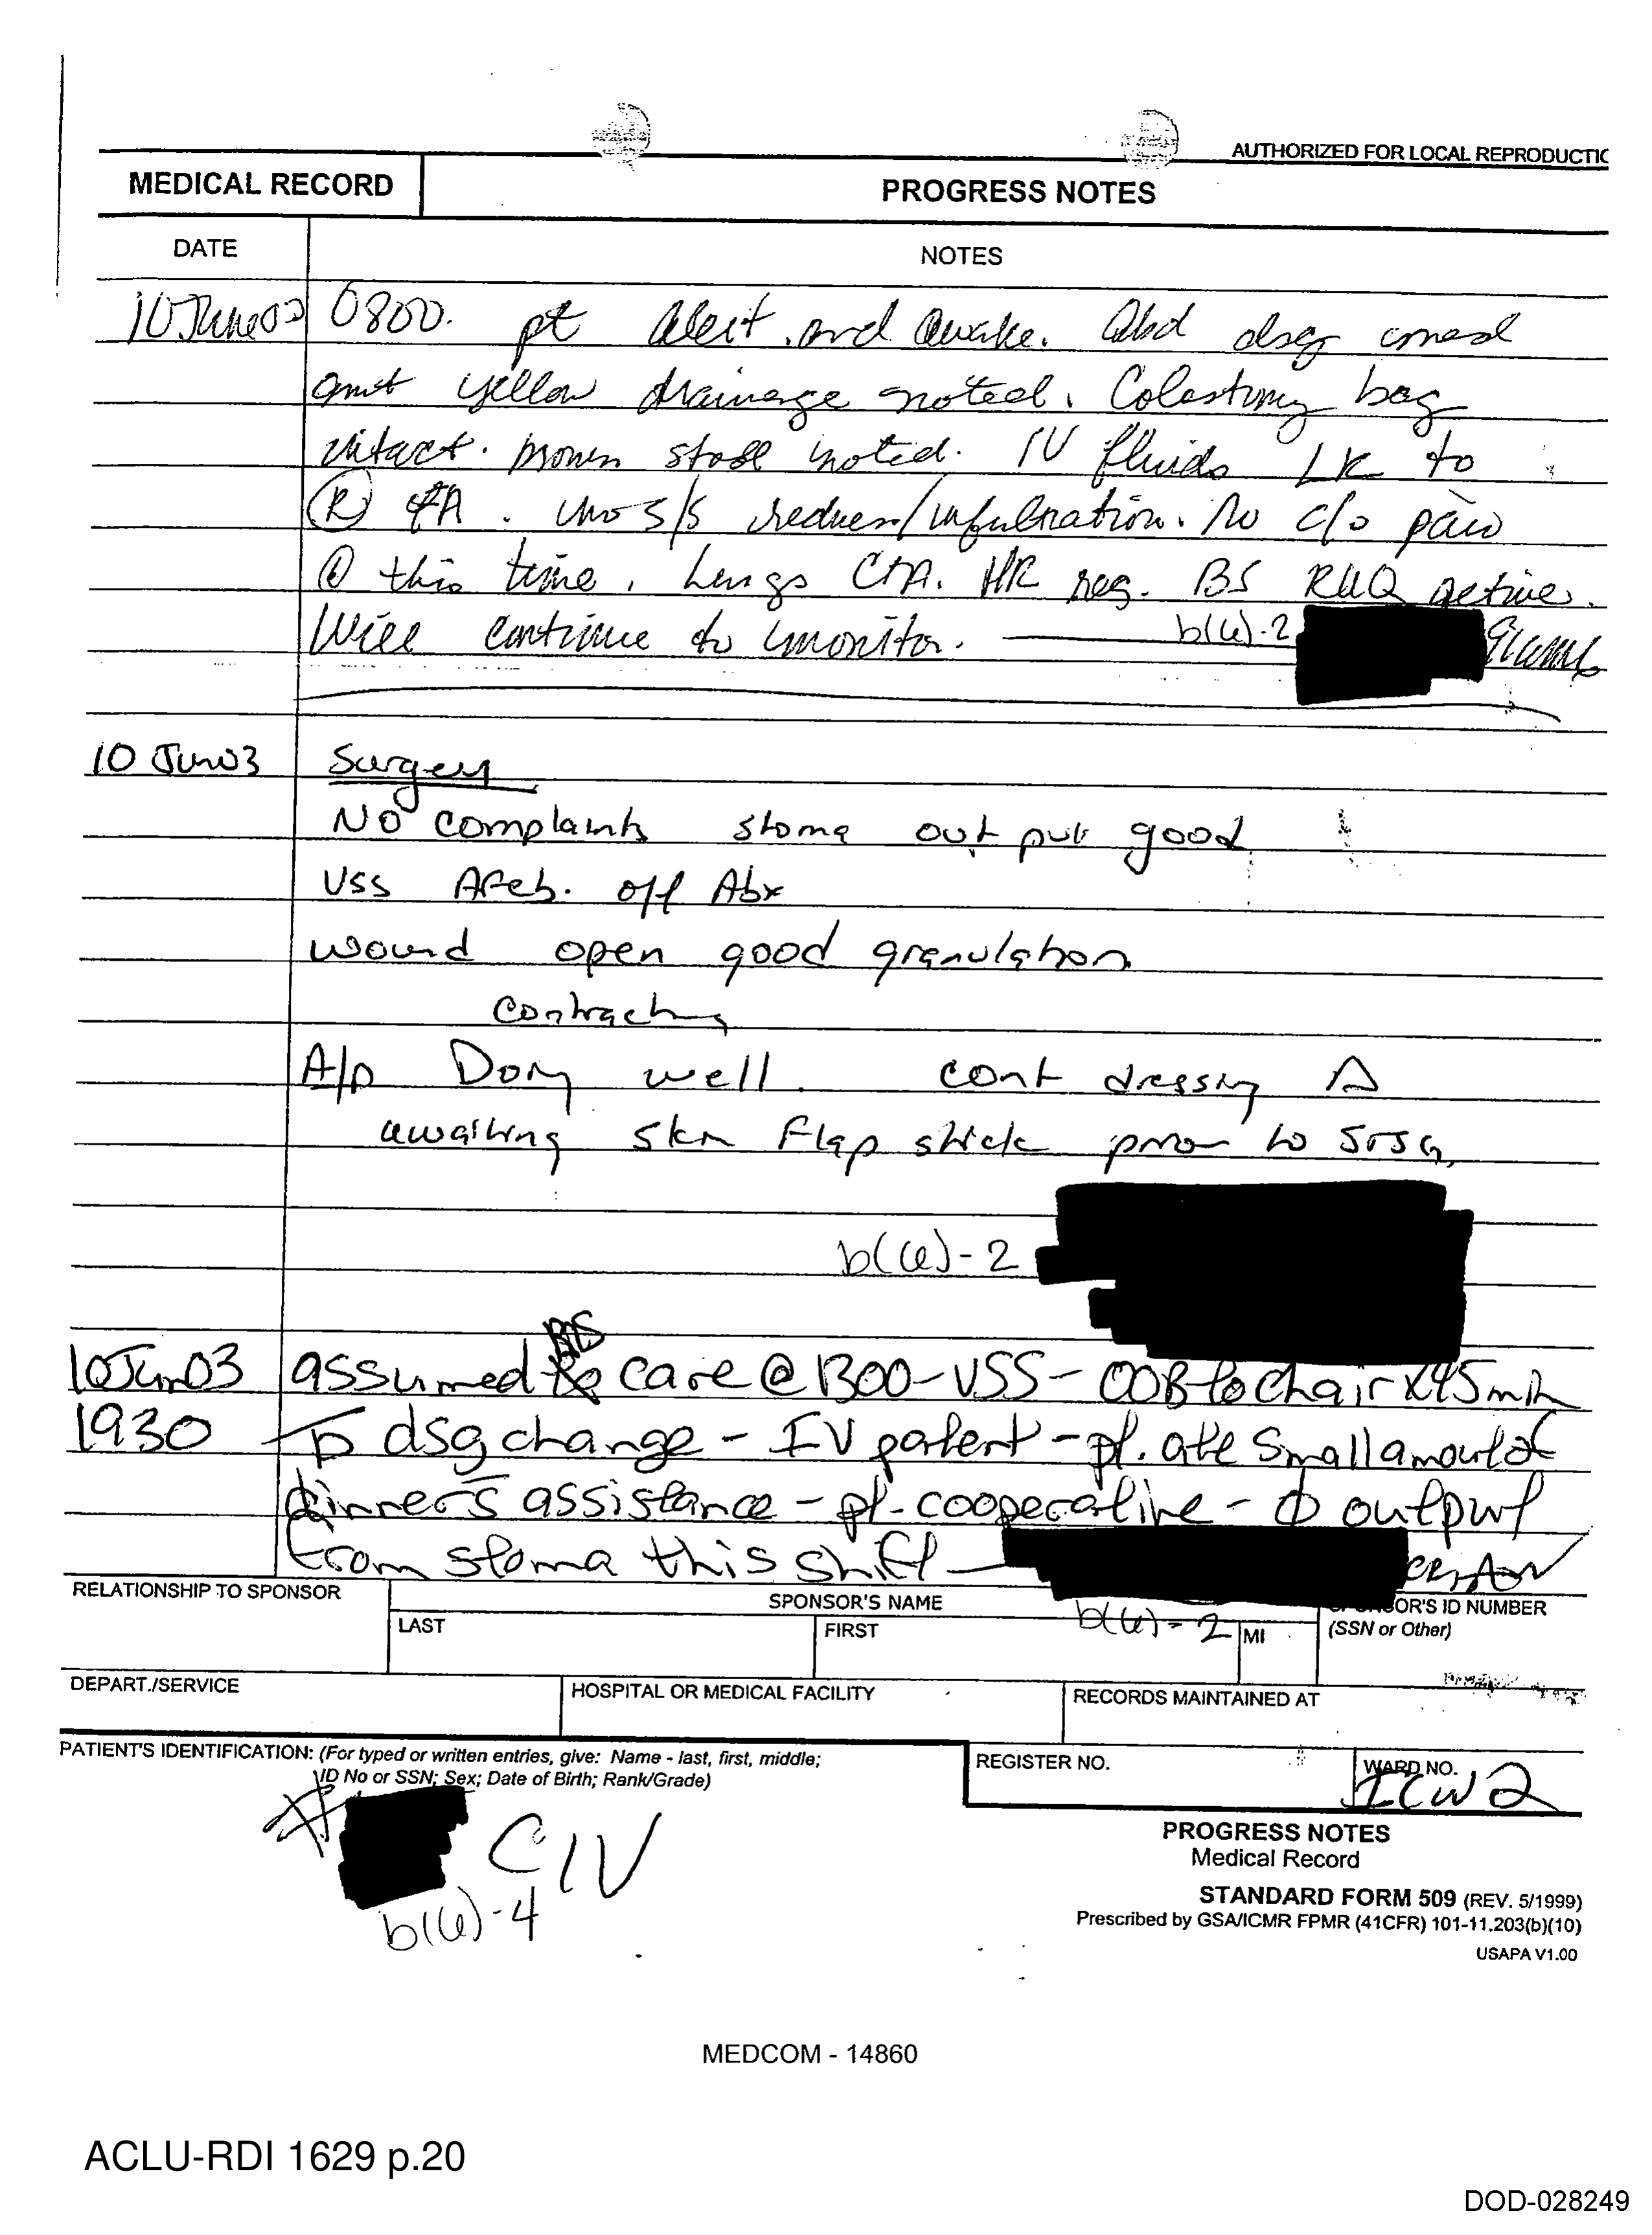 AUTHORIZED FOR LOCAL REPRODUCTIC
MEDICAL RECORD
PROGRESS NOTES
DATE
NOTES
10 June 03 0800. pt alert and awake. Abd dsg
amt yellow drainage noted. Colostomy bag
intact. brown stool noted. IV fluids LR to
Ⓡ FA. no s/s redness/infiltration. No c/o pain
@ this time. Lungs CTA. HR reg. BS RUQ active.
Will continue to monitor.
b(6)-2
91WM6
10 Jun 03 Surgery
No complaints stoma out put good
VSS Afeb. off Abx
wound open good granulation
contracting
A/p Doing well. cont dressing Δ
awaiting skin flap stick prior to STSG.
b(6)-2
10 Jun 03 assumed care @ 1300-VSS- OOB to chair x45min
1930 p̄ dsg change - IV patent - pt. ate small amount of
dinner s̄ assistance - pt. cooperative - Ø output
from stoma this shift
RELATIONSHIP TO SPONSOR
SPONSOR'S NAME
LAST
FIRST
b(6)-2
MI
OR'S ID NUMBER
(SSN or Other)
DEPART./SERVICE
HOSPITAL OR MEDICAL FACILITY
RECORDS MAINTAINED AT
PATIENT'S IDENTIFICATION: (For typed or written entries, give: Name - last, first, middle;
ID No or SSN; Sex; Date of Birth; Rank/Grade)
REGISTER NO.
WARD NO.
ICW2
# CIV
b(6)-4
PROGRESS NOTES
Medical Record
STANDARD FORM 509 (REV. 5/1999)
Prescribed by GSA/ICMR FPMR (41CFR) 101-11.203(b)(10)
USAPA V1.00
MEDCOM - 14860
ACLU-RDI 1629 p.20
DOD-028249